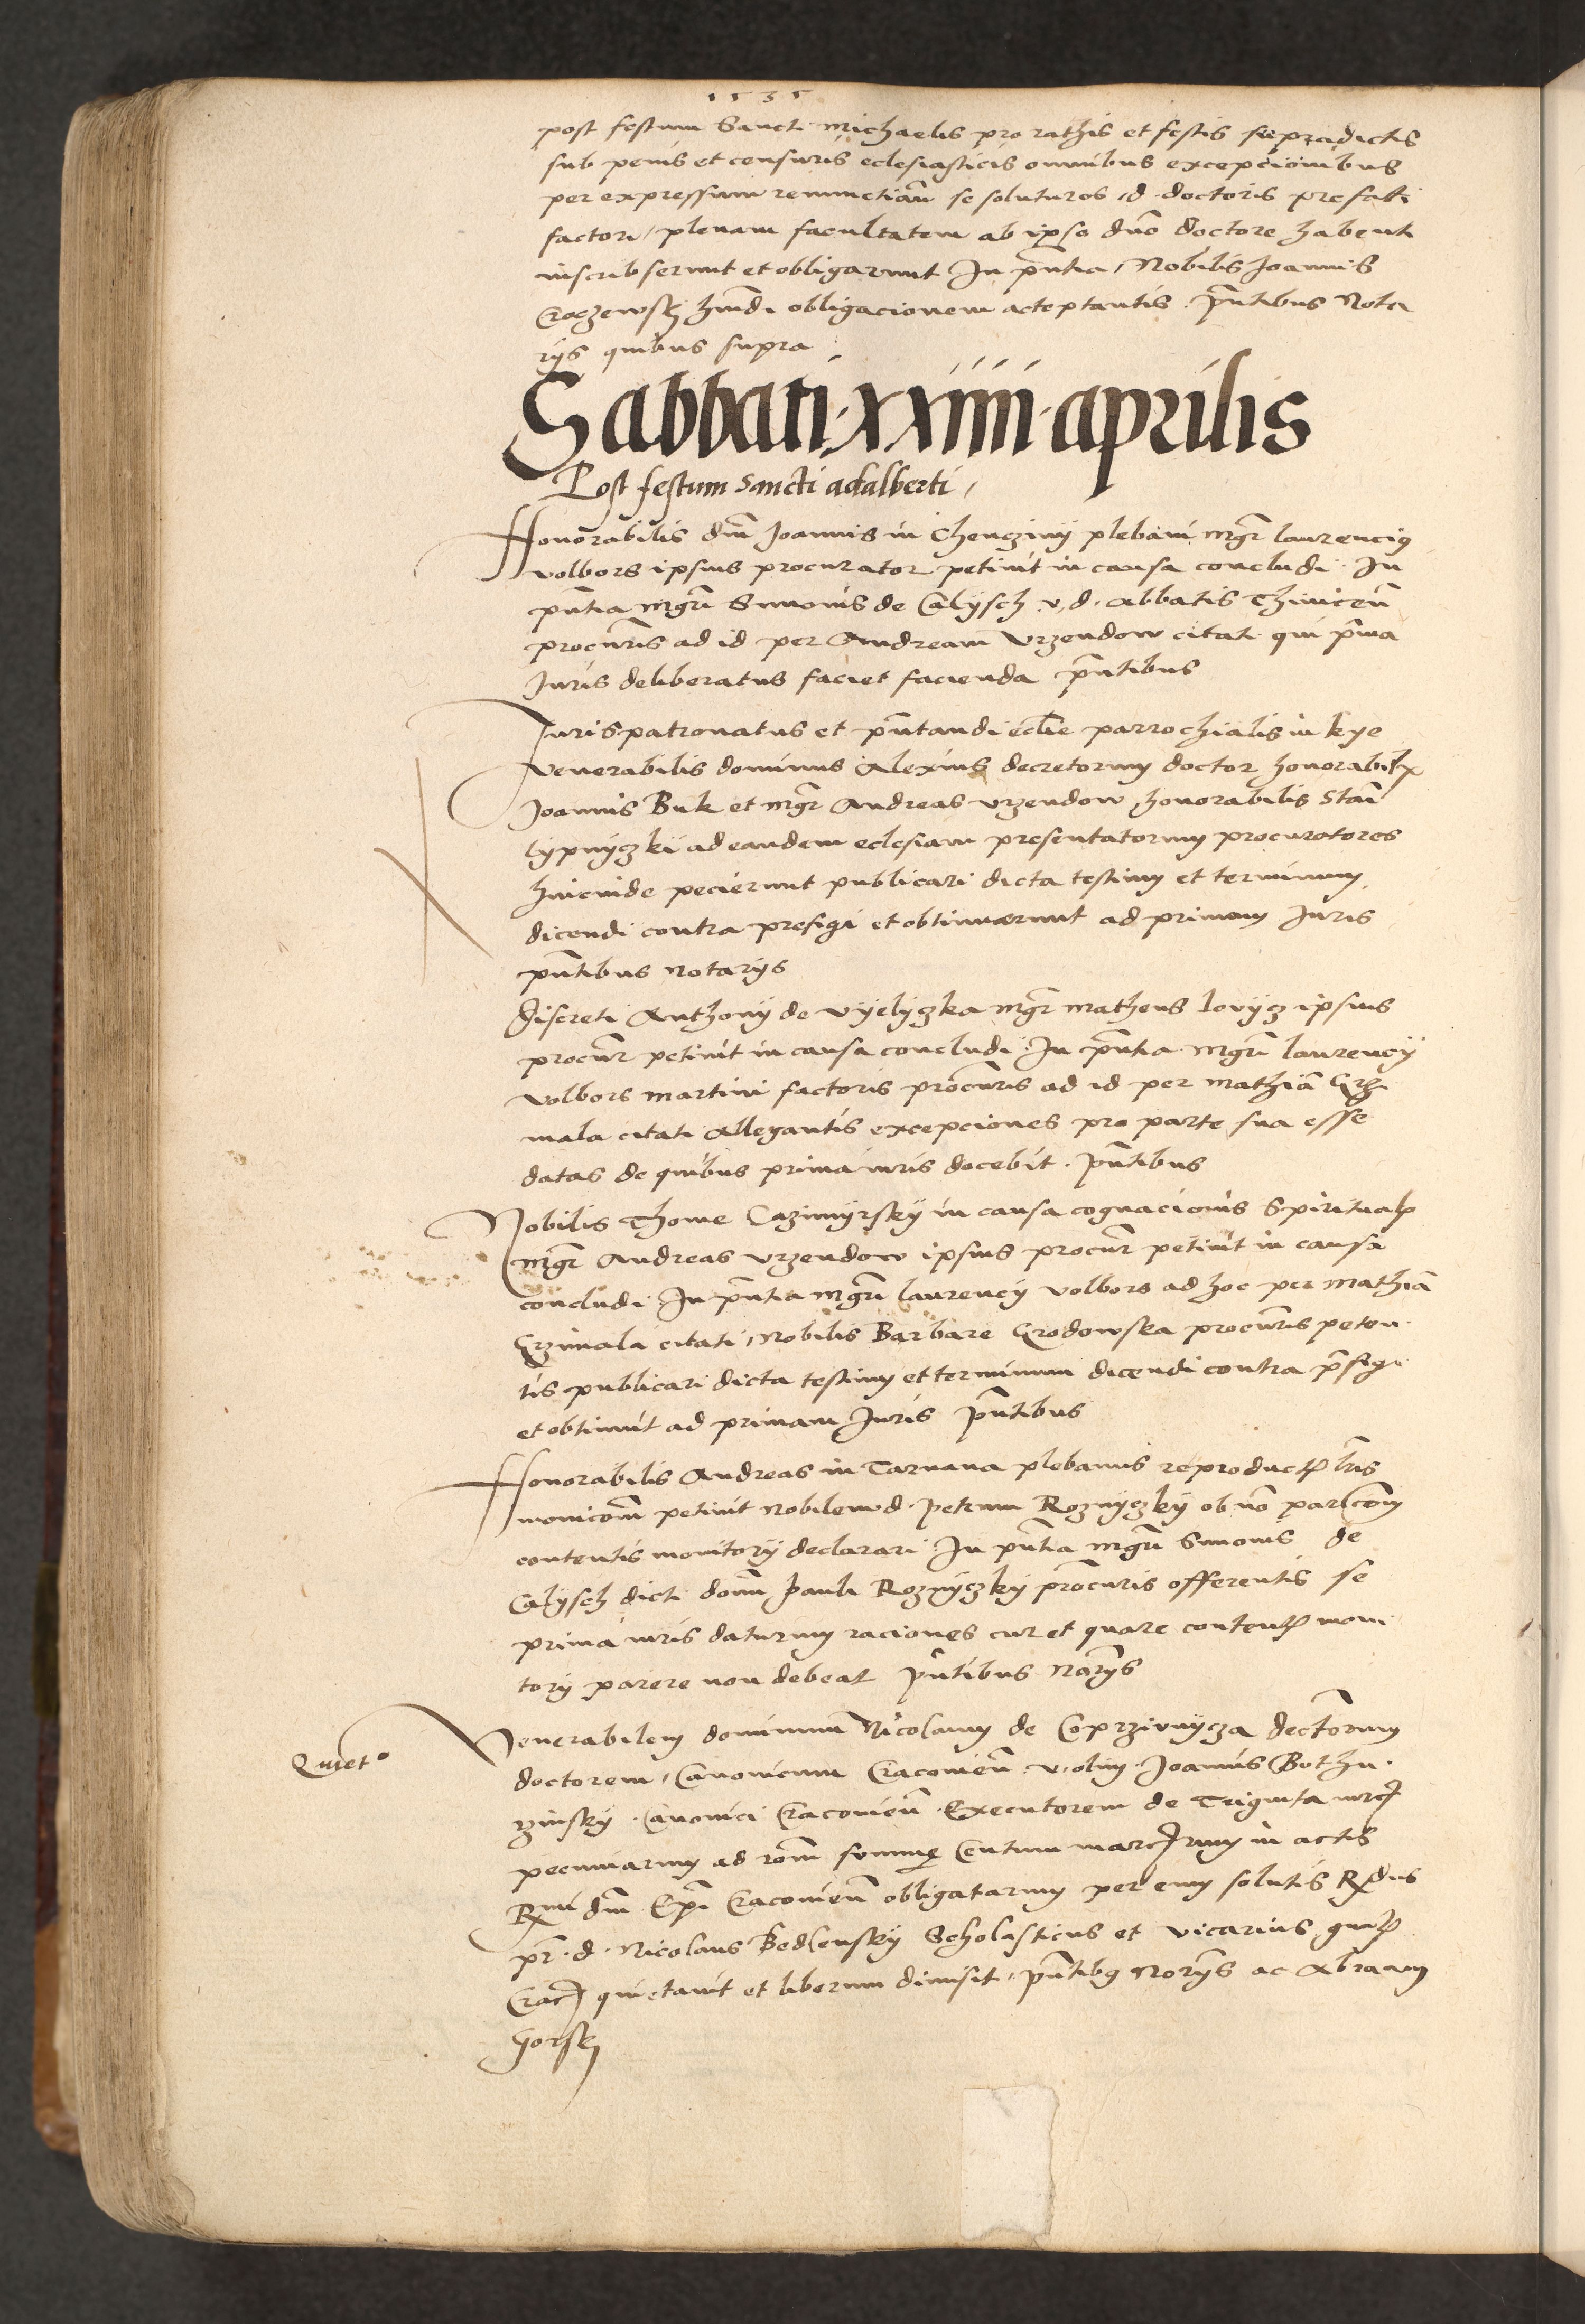 1535
post festum Sancti Michaelis pro rathis et festis supradictis
sub penis et censuris eclesiasticis omnibus excepcionibus
per expressum renunctiãn se soluturos d. doctoris prefati
factori / plenam facultatem ab ipso dno doctore habenti
inscribserunt et obligarunt In pñtia Nobilis Joannis
hmõdi obligacionem acceptantis. pñtibus Nota
rijs quibus supra
Sabbati · xxiiii · aprilis
Post festum sancti adalberti /
Honorabilis dni Joannis in Chencziny plebani mgr laurencius
volbors ipsius procurator petiuit in causa concludi. In
pñtia mgri Simonis de Calysch v. d. abbatis Thinicen
procuris ad id per Andream Vrzendow citati qui prima
Juris deliberatus faciet facienda pñtibus
Jurispatronatus et pñtandi ecclie parrochialis in kye
Venerabilis dominus Alexius decretorum doctor honorabilis
Joannis Buk et mgr Andreas vrzendow honorabilis Stani
lypnyczki ad eandem eclesiam presentatorum procuratores
hincinde pecierunt publicari dicta testium et terminum
dicendi contra prefigi et obtinuerunt ad primam Juris
pñtibus Notarijs
Discreti Anthonij de Vyelyczka mgr matheus lovycz ipsius
procur petiuit in causa concludi. In pñtia mgri laurencij
volbors martini factoris procuris ad id per mathiã Grzi
mala citati Allegantis excepciones pro parte sua esse
datas de quibus prima iuris docebit. pñtibus
Nobilis Thome Cazimyrsky in causa cognacionis Spiritualis
mgr Andreas vrzendow ipsius procur petiuit in causa
concludi In pñtia mgri laurencij volbors ad hoc per Mathiã
Grzimala citati Nobilis Barbare Grodowska procuris peten
tis publicari dicta testium et terminum dicendi contra prefigi
et obtinuit ad primam Juris pñtibus
Honorabilis Andreas in Tarnaua plebanus reproductis lris
monicom petiuit Nobilem d. petrum Roznyczky ob no paricom
contentis monitorij declarari. In pñtia mgri Simonis de
Calysch dicti domi pauli Roznyczky procuris offerentis se
prima iuris daturum raciones cur et quare contentis moni
torij parere non debeat pñtibus Narijs
Quiet°
Venerabilem dominum Nicolaum de Coprziwnycza dectorum
doctorem / Canonicum Cracouien v. olim Joannis Bothu
rzinsky Canonici Cracouien Executorem de Triginta mrc
pecuniarum ad rom summe Centum marcarum in actis
Rmi dni Epi Cracouien obligatarum per eum solutis Rndus
pr. d. Nicolaus Bedlensky Scholasticus et vicarius gnlis
Crac quietauit et liberum dimisit / pñtibus Norijs ac Abraam
Gorsky